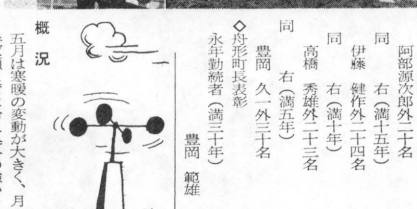 阿部源次郎外二十名
同　右（満十五年）
伊藤　健作外二十四名
同　右（満十年）
高橋　秀雄外二十三名
同　右（満五年）
豊岡　久一外三十名
◇舟形町長表彰
永年勤続者（満三十年）
豊岡　範雄
概況
五月は寒暖の変動が大きく、月